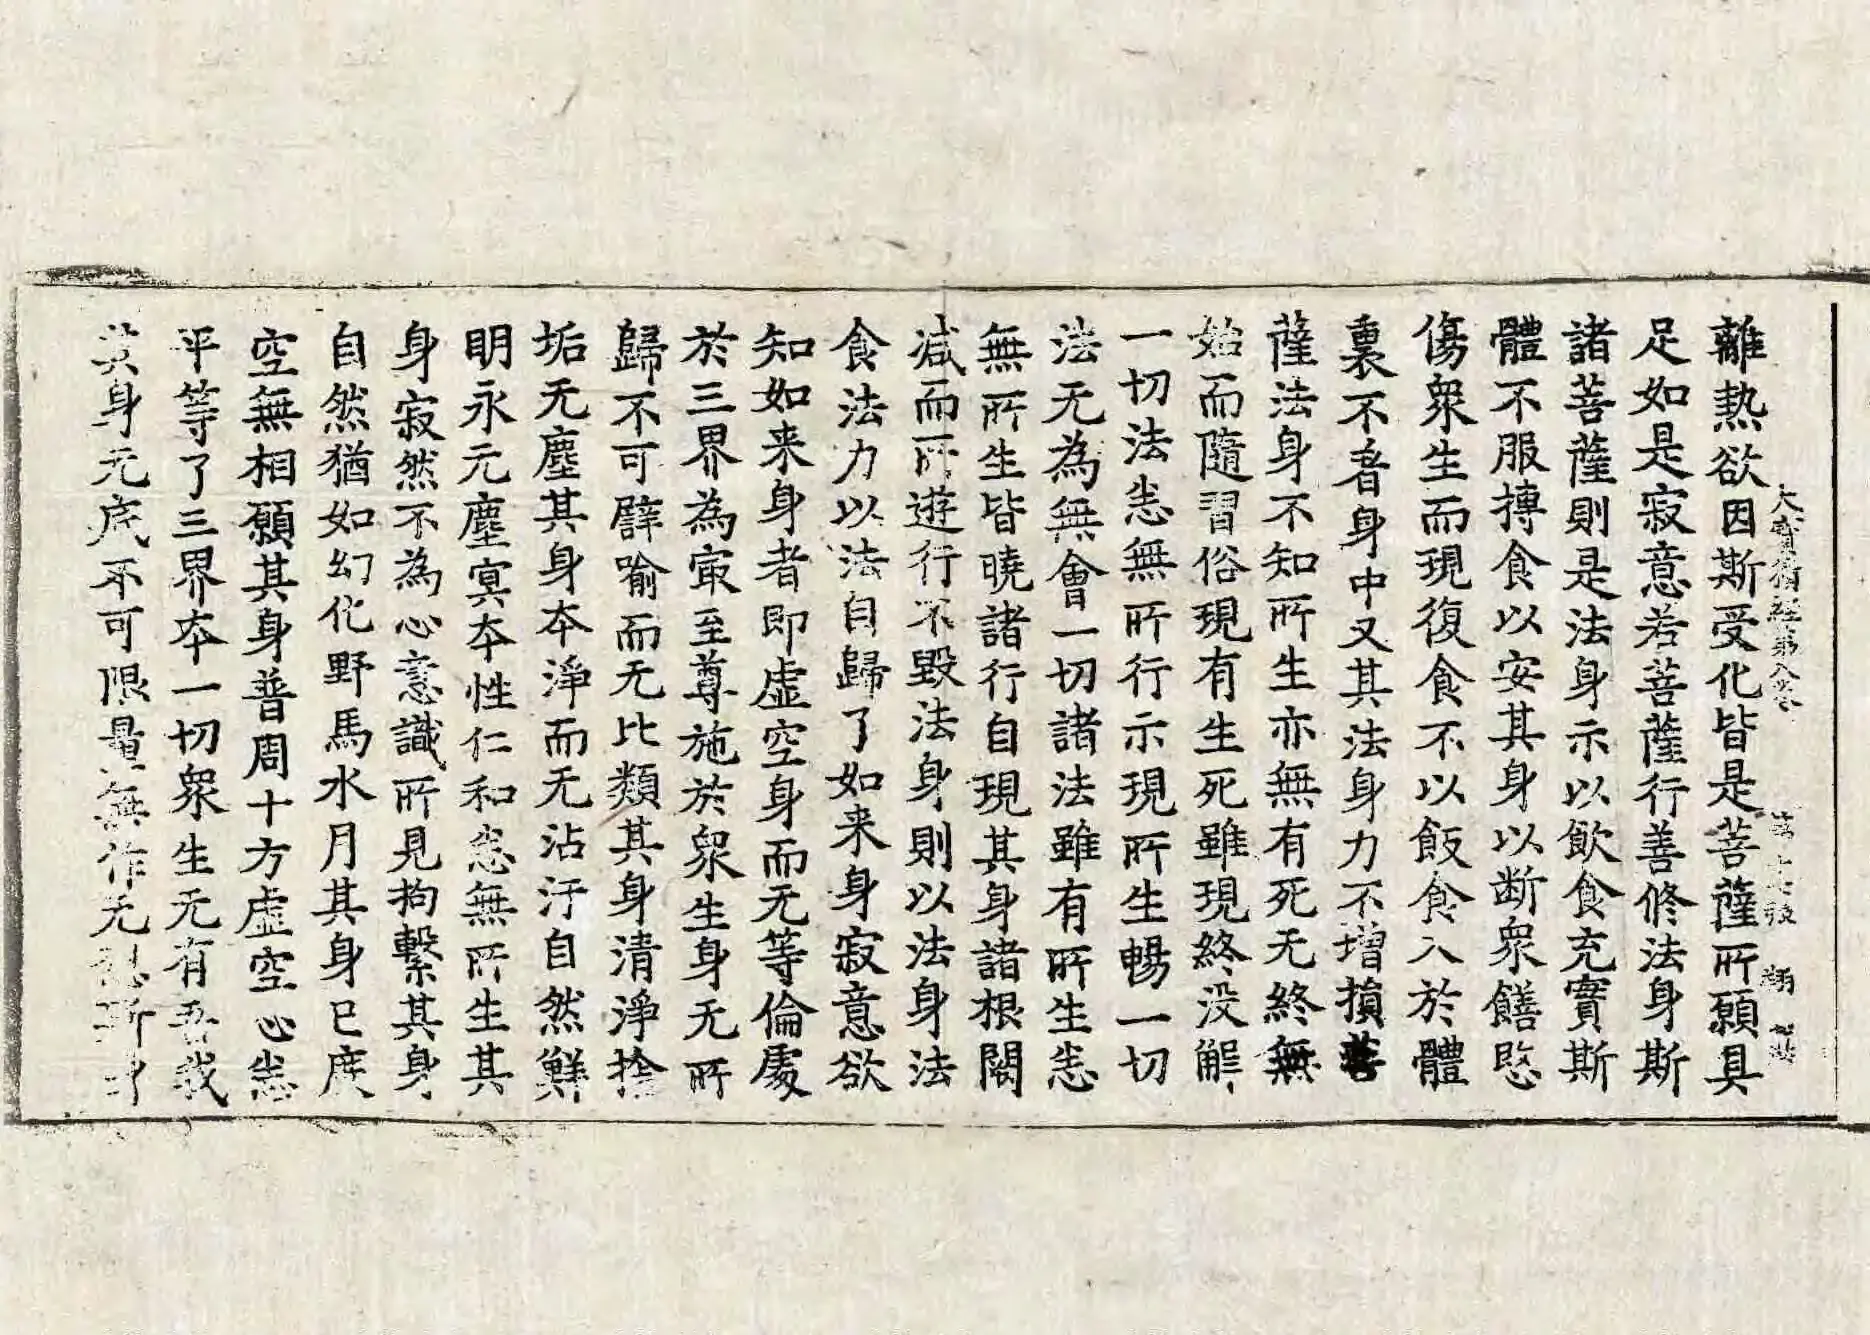 大寶積經第八卷 第十七張 翔
離熱欲因斯受化皆是菩薩所願具
足如是寂意若菩薩行善修法身斯
諸菩薩則是法身示以飲食充實斯
體不服摶食以安其身以断衆饍愍
傷衆生而現復食不以飯食入於體
裏不着身中又其法身力不增損善
薩法身不知所生亦無有死无終無
始而隨習俗現有生死雖現終没解
一切法悉無所行示現所生暢一切
法无為無會一切諸法雖有所生悉
無所生皆曉諸行自現其身諸根闕
减而所遊行不毀法身則以法身法
食法力以法自歸了如来身寂意欲
知如来身者即虛空身而无等倫處
於三界為㝡至尊施於衆生身无所
歸不可譬喻而无比類其身清淨捨
垢无塵其身夲淨而无沾汙自然鮮
明永元塵寘夲性仁和悉無所生其
身寂然不為心意識所見拘繫其身
自然猶如幻化野馬水月其身已度
空無相願其身普周十方虛空心悉
平等了三界夲一切衆生无有吾我
其身无底不可限量無作无